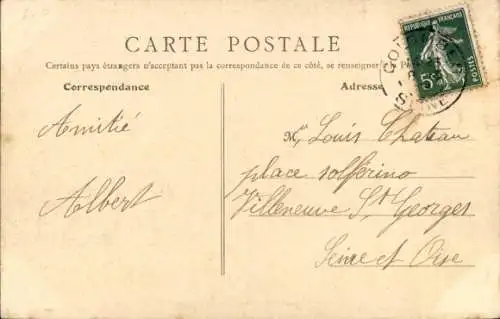 CARTE POSTALE
Certains pays étrangers n'acceptant pas la correspondance de ce côté, se renseigner
Correspondance
Adresse
REPUBLIQUE FRANÇAISE
POSTES
5c
Amitié
Albert
Mr Louis Chateau
place solférino
Villeneuve St Georges
Seine et Oise